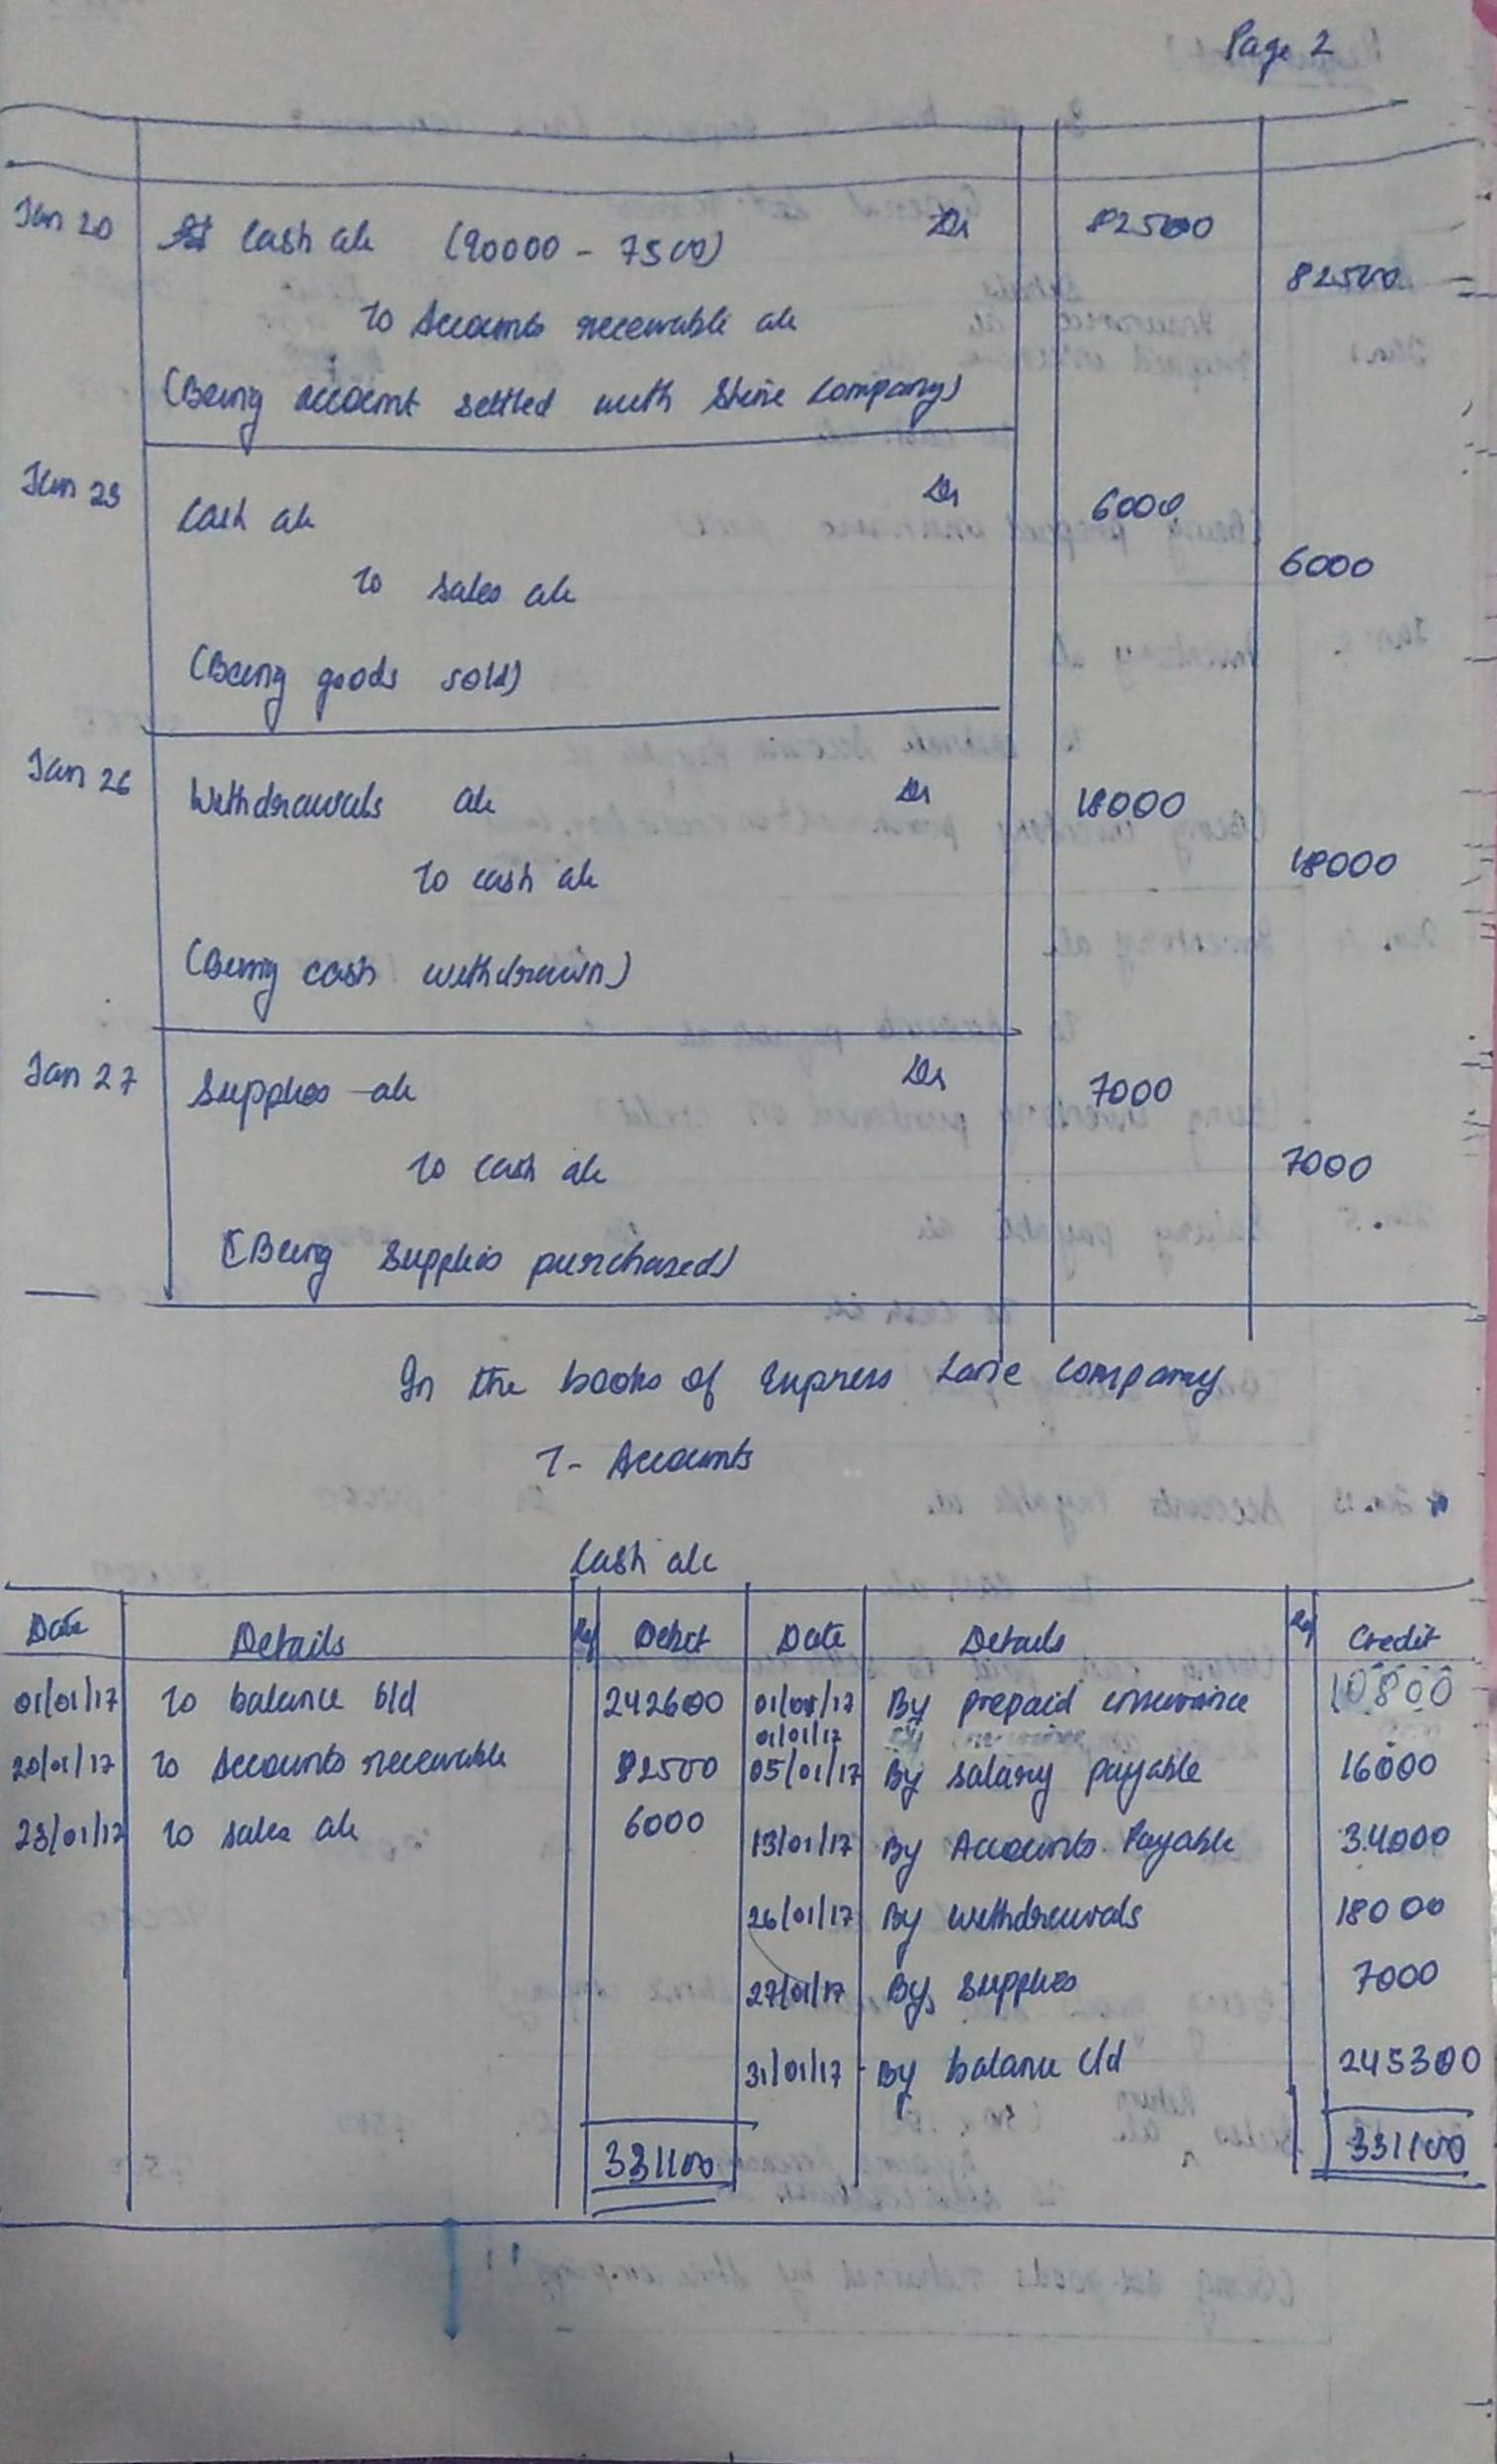 Page 2
Jan 20 Cash a/c (90000 - 7500) Dr 82500
To Accounts receivable a/c 82500
(Being account settled with Shine Company)
Jan 23 Cash a/c Dr 6000
To sales a/c 6000
(Being goods sold)
Jan 26 Withdrawals a/c Dr 18000
To cash a/c 18000
(Being cash withdrawn)
Jan 27 Supplies a/c Dr 7000
To cash a/c 7000
(Being Supplies purchased)
In the books of Express Lane Company
T- Accounts
Cash a/c
Date Details Ref Debit Date Details Ref Credit
01/01/17 To balance b/d 242600 01/01/17 By prepaid insurance 10800
01/01/17
20/01/17 To Accounts receivable 82500 05/01/17 By salary payable 16000
23/01/17 To sales a/c 6000 13/01/17 By Accounts Payable 34000
26/01/17 By withdrawals 18000
27/01/17 By supplies 7000
31/01/17 By balance c/d 245300
331100 331100